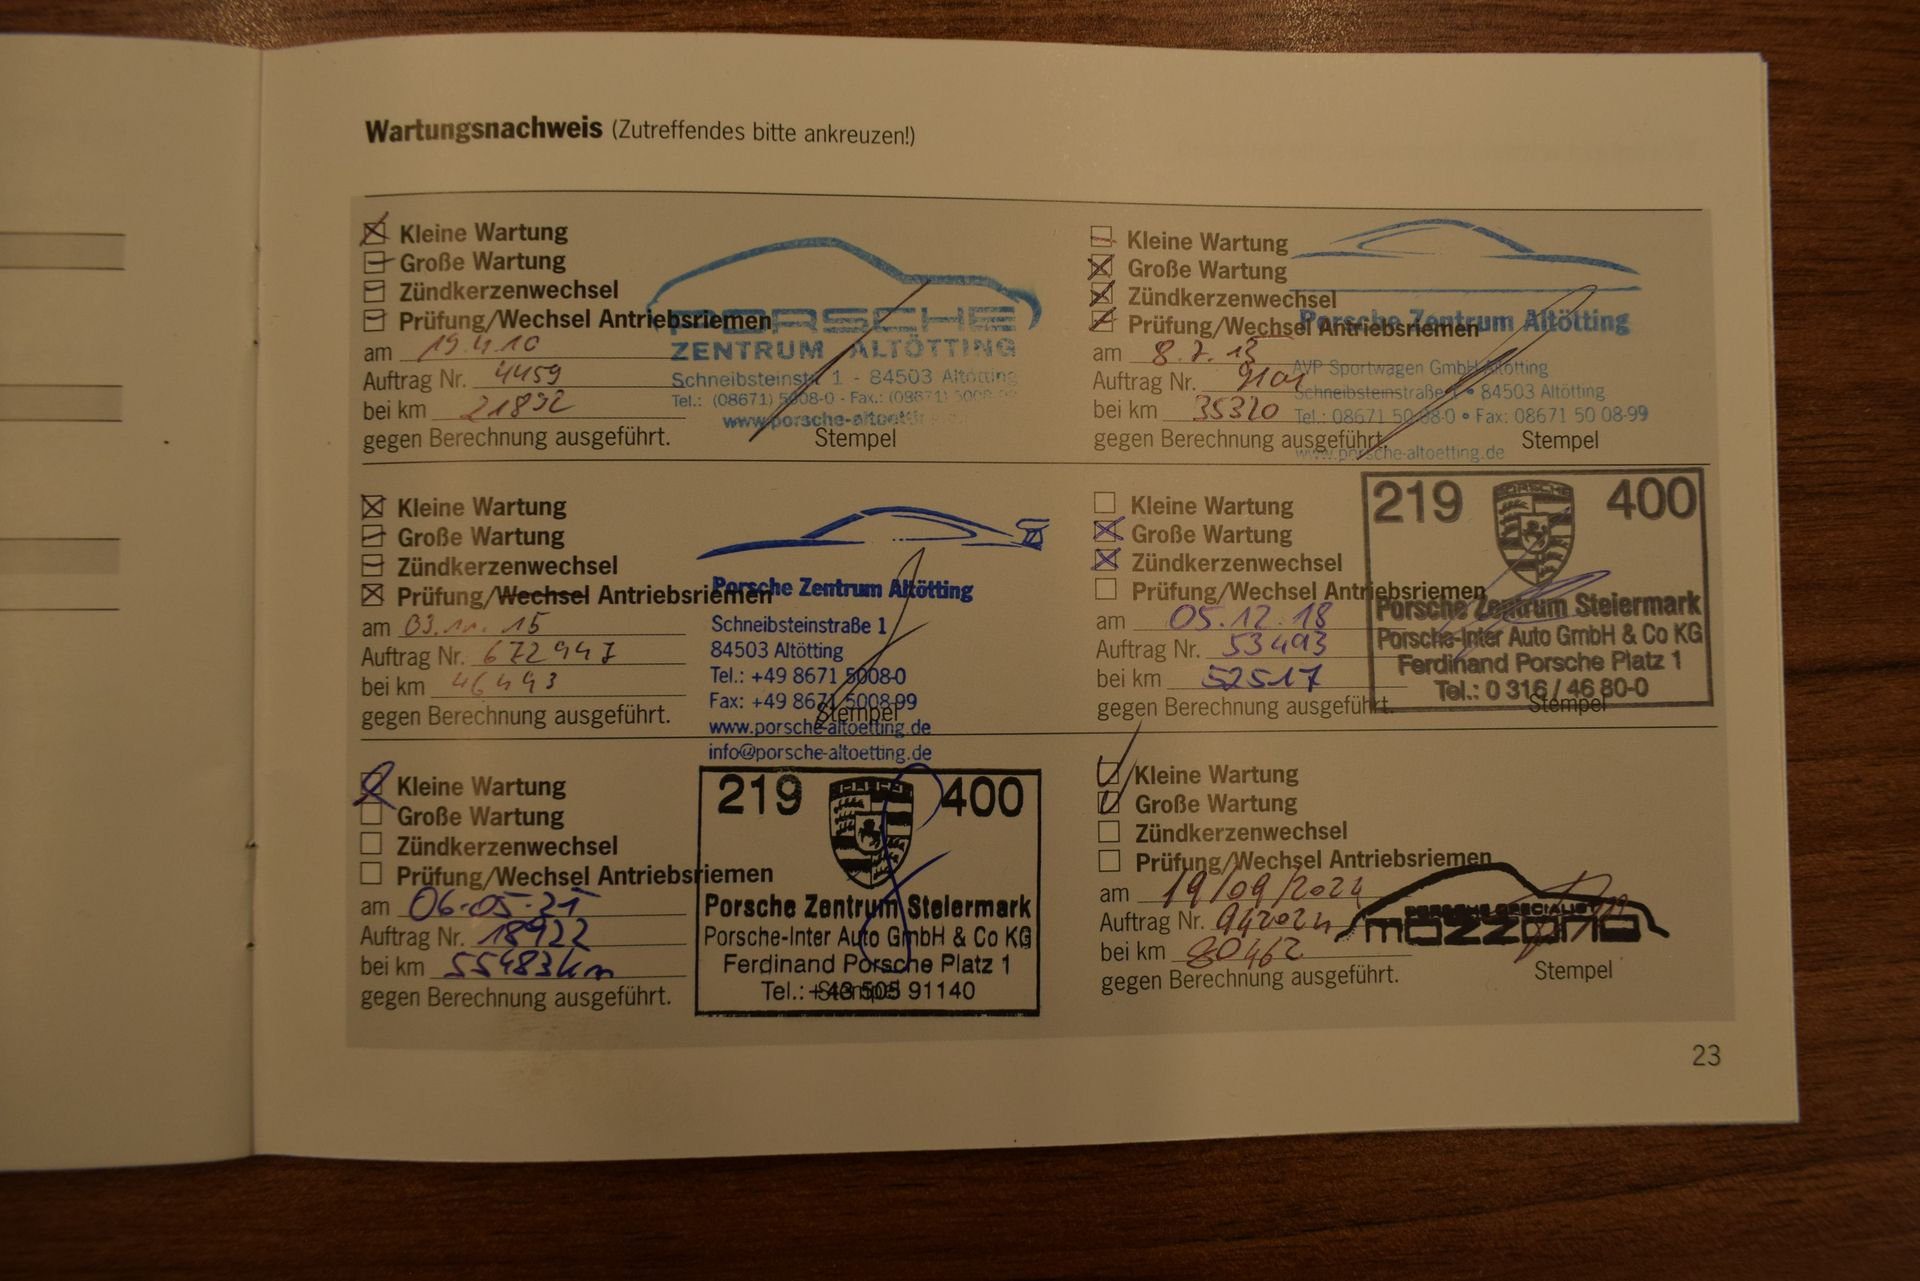 Wartungsnachweis (Zutreffendes bitte ankreuzen!)
Kleine Wartung
Große Wartung
Zündkerzenwechsel
Prüfung/Wechsel Antriebsriemen
am 19.4.10
Auftrag Nr. 4459
bei km 21892
gegen Berechnung ausgeführt.
PORSCHE
ZENTRUM ALTÖTTING
Schneibsteinstr. 1 - 84503 Altötting
Tel.: (08671) 5008-0 - Fax.: (08671)
www.porsche-altoetting
Stempel
Kleine Wartung
Große Wartung
Zündkerzenwechsel
Prüfung/Wechsel Antriebsriemen
am 8.7.13
Auftrag Nr.
bei km 35320
gegen Berechnung ausgeführt.
Porsche Zentrum Altötting
AVP Sportwagen GmbH Altötting
Schneibsteinstraße 1 • 84503 Altötting
Tel.: 08671 50 08-0 • Fax: 08671 50 08-99
www.porsche-altoetting.de
Stempel
Kleine Wartung
Große Wartung
Zündkerzenwechsel
Prüfung/Wechsel Antriebsriemen
am 03.11.15
Auftrag Nr. 672947
bei km 46493
gegen Berechnung ausgeführt.
Porsche Zentrum Altötting
Schneibsteinstraße 1
84503 Altötting
Tel.: +49 8671 5008-0
Fax: +49 8671 5008-99
Stempel
www.porsche-altoetting.de
info@porsche-altoetting.de
Kleine Wartung
Große Wartung
Zündkerzenwechsel
Prüfung/Wechsel Antriebsriemen
am 05.12.18
Auftrag Nr. 53493
bei km 52517
gegen Berechnung ausgeführt.
219 PORSCHE 400
Porsche Zentrum Steiermark
Porsche-Inter Auto GmbH & Co KG
Ferdinand Porsche Platz 1
Tel.: 0 316 / 46 80-0
Stempel
Kleine Wartung
Große Wartung
Zündkerzenwechsel
Prüfung/Wechsel Antriebsriemen
am 06-05-21
Auftrag Nr. 18922
bei km 55483km
gegen Berechnung ausgeführt.
219 400
Porsche Zentrum Steiermark
Porsche-Inter Auto GmbH & Co KG
Ferdinand Porsche Platz 1
Tel.: +43 505 91140
Stempel
Kleine Wartung
Große Wartung
Zündkerzenwechsel
Prüfung/Wechsel Antriebsriemen
am 19/09/2024
Auftrag Nr.
bei km 80462
gegen Berechnung ausgeführt.
PORSCHE SPECIALIST
Stempel
23